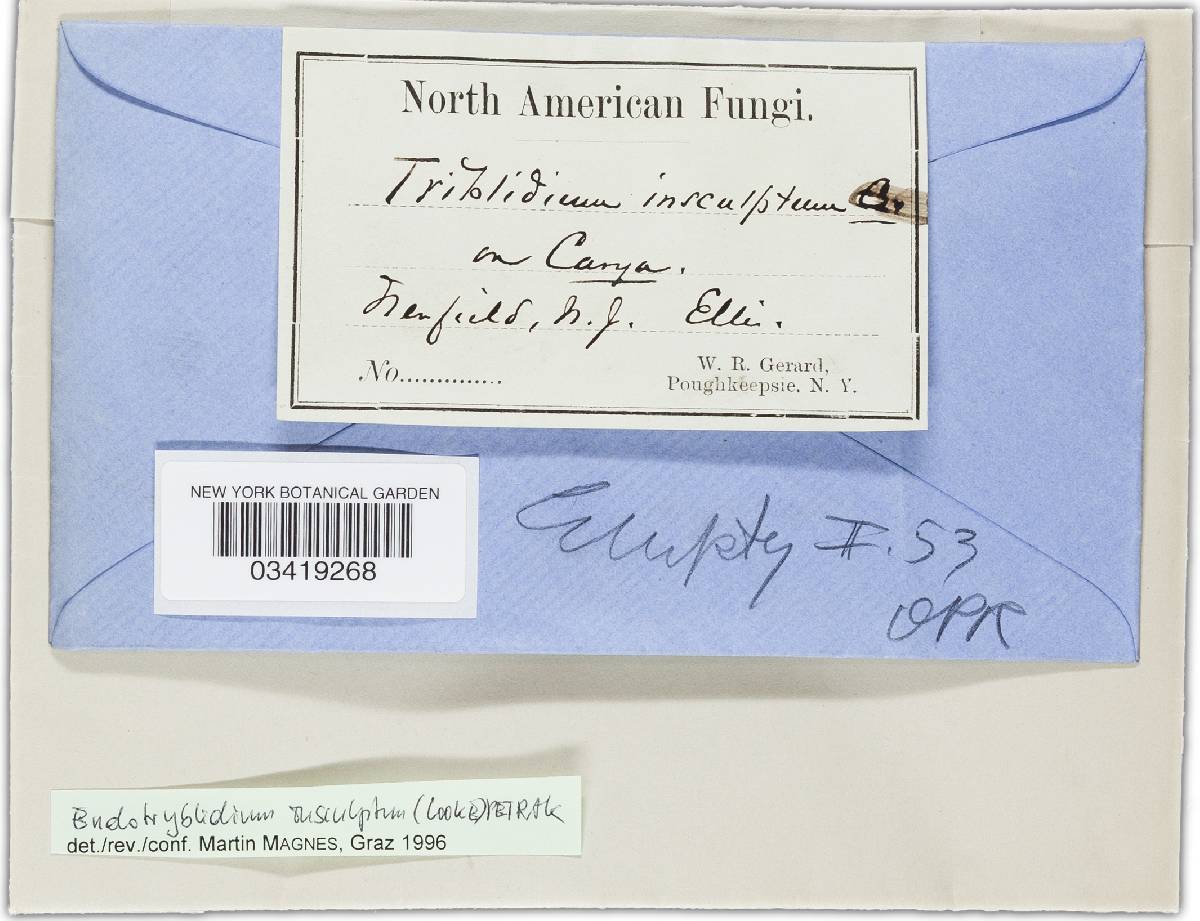 North American Fungi.
Triblidium insculptum
on Carya.
Newfield, N. J. Ellis.
No..............
W. R. Gerard,
Poughkeepsie, N. Y.
NEW YORK BOTANICAL GARDEN
03419268
Empty II. 53
Endotryblidium insculptum (COOKE) PETRAK
det./rev./conf. Martin MAGNES, Graz 1996